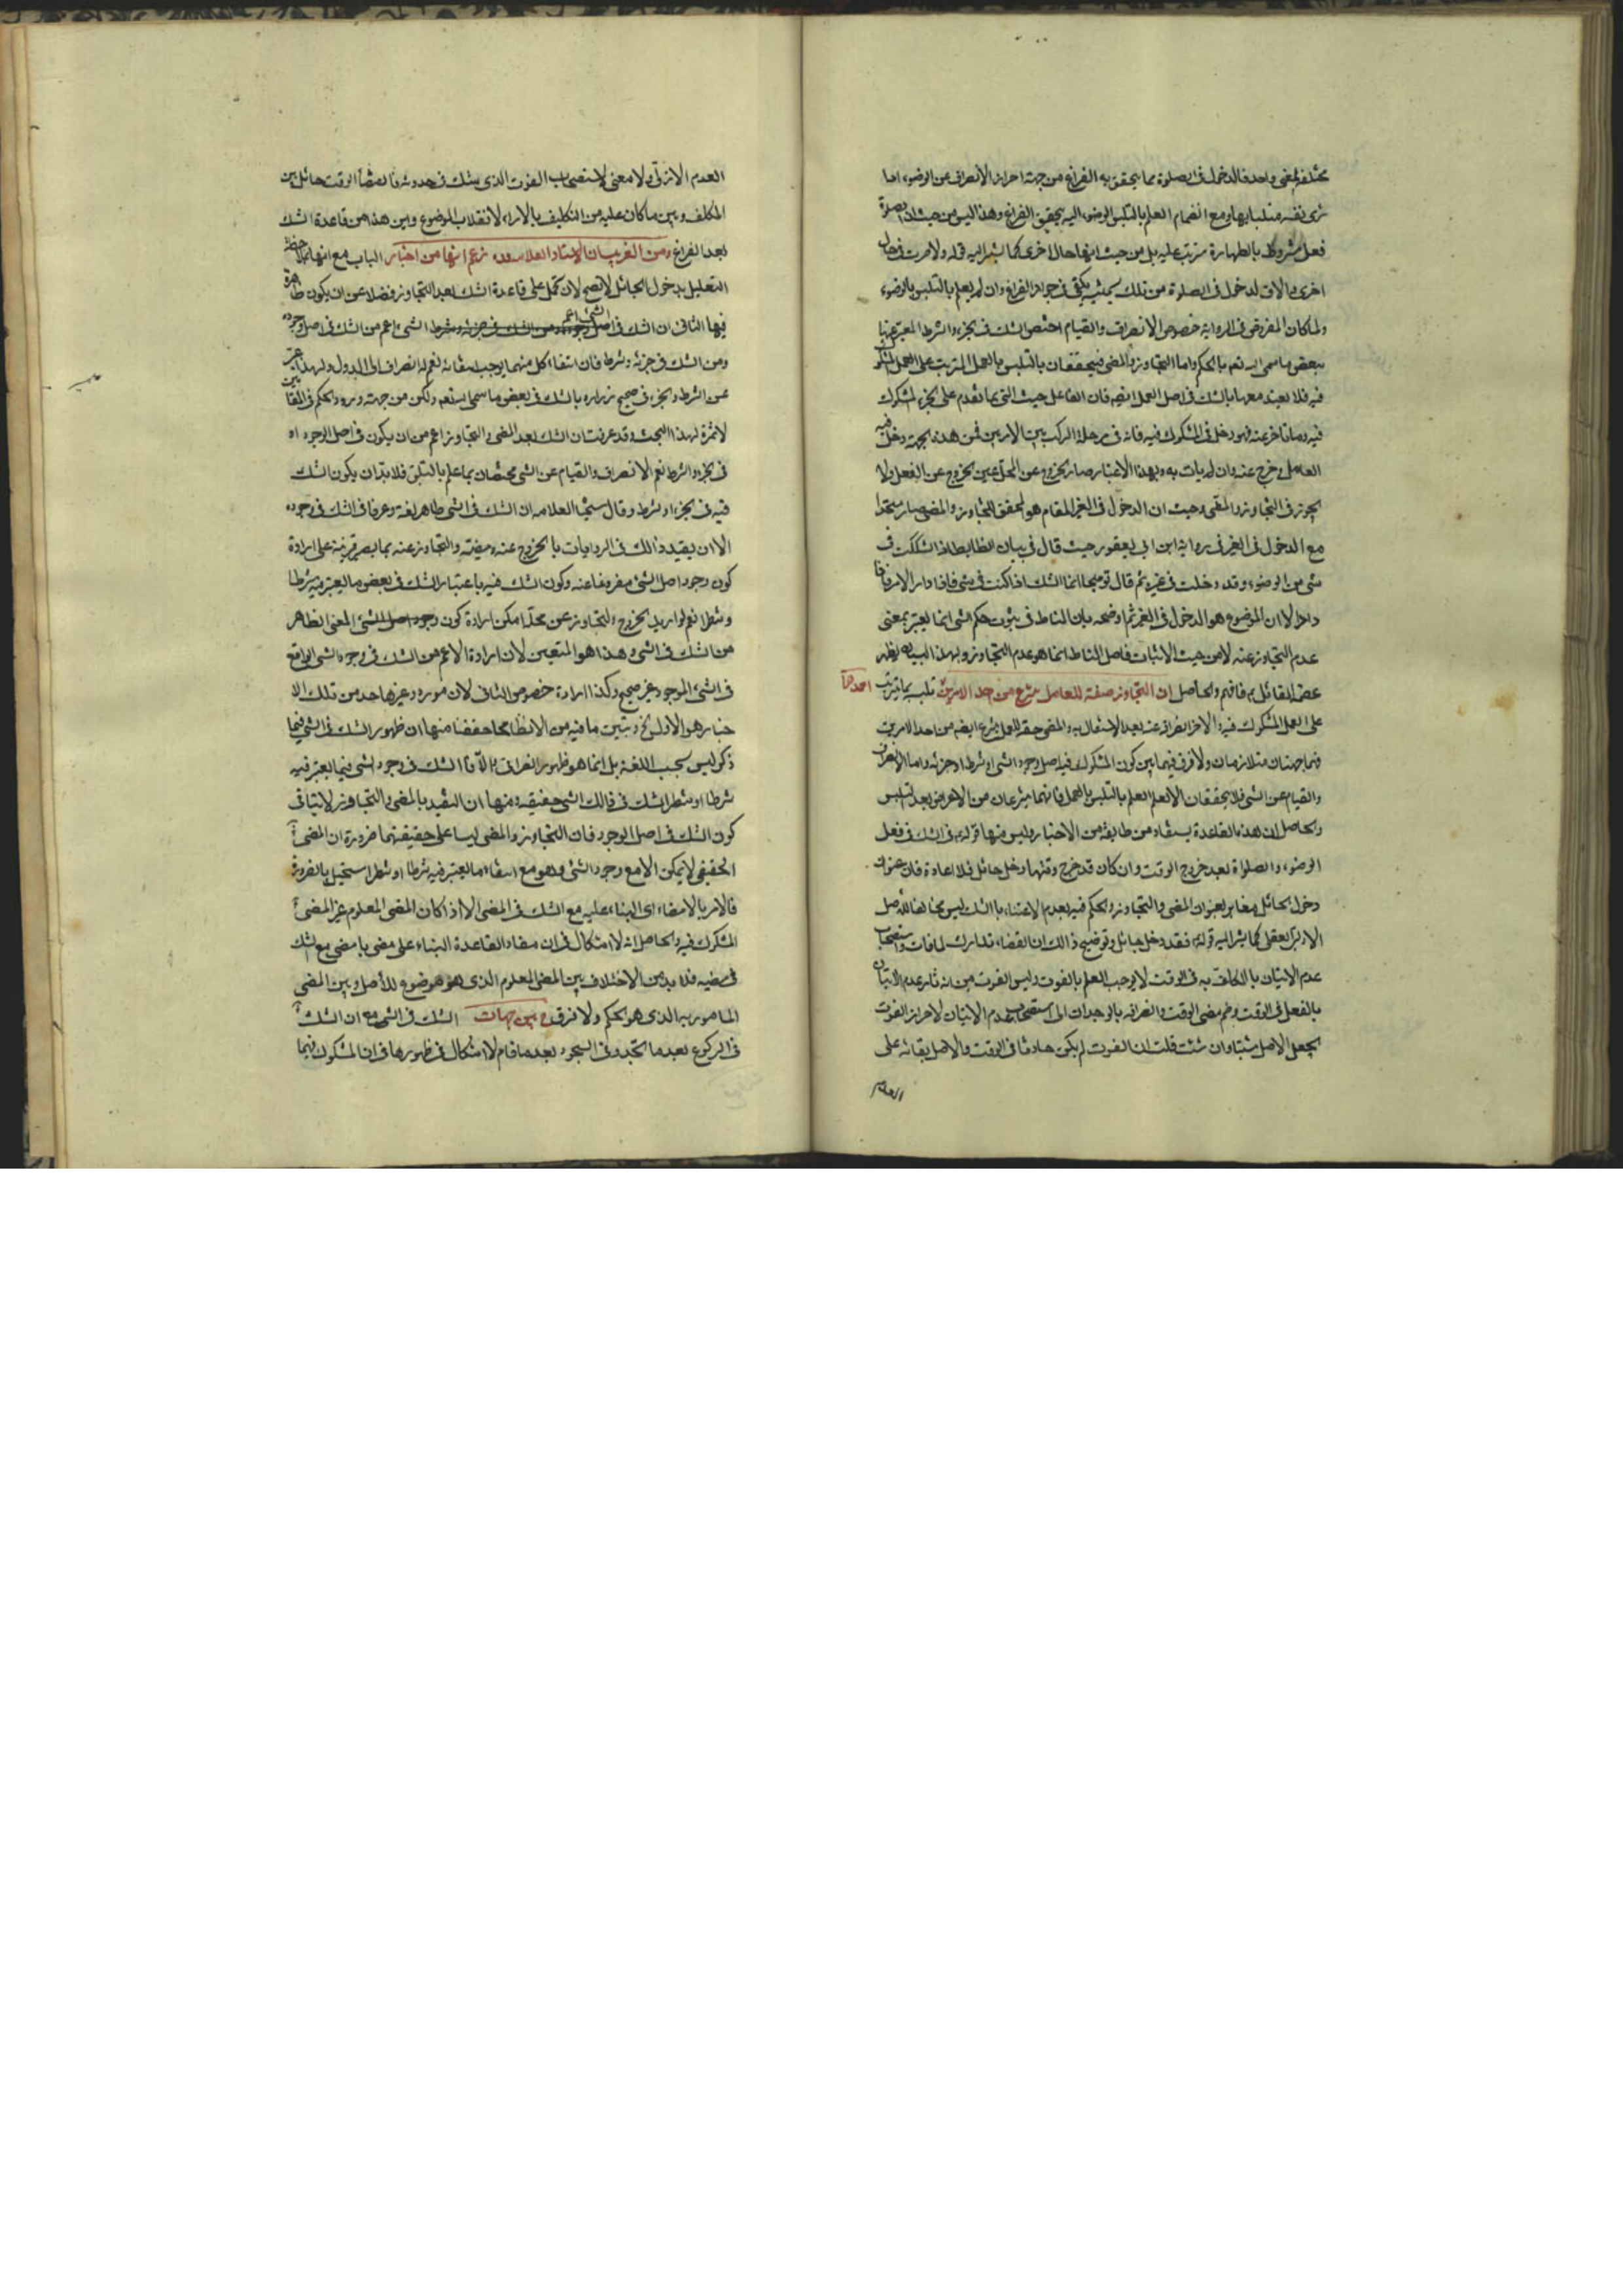 مختلفة لمعنى واحد فالدخول في الصلوة مما يتحقق به الفراغ من جهة احراز الانصراف عن الوضوء اما
ترى نفسه متلبسا بها ومع انضمام العلم بالتلبس الوضوء اليه يتحقق الفراغ وهذا ليس من حيث ان الصلوة
فعل مشروط بالطهارة مترتب عليه بل من حيث انها حال اخرى كما يشير اليه قوله ولا صرت في حال
اخرى والا فالدخول في الصلوة من تلك الحيثية يكفي في جواز الفراغ وان لم يعلم بالتلبس بالوضوء
ولما كان المفروض في الرواية خصوص الانصراف والقيام اختص الشك في الجزء والشرط المعتبر عنها
ببعض ما سمى الله نعم بالحكم واما التجاوز والمضي فيتحققان بالتلبس بالعمل المترتب على العمل المشكوك
فيه فلا يعتبر معها بالشك في اصل العمل ايضم فان الفاعل حيث اتى بما تقدم على الجزء المشكوك
فيه وما تاخر عنه فهو دخل في المشكوك فيه فانه في مرحلة الركب بين الامرين فمن هذه الجهة دخل فيه
العامل وخرج عنه وان لم يات به وبهذا الاعتبار صار الخروج عن المحل عين الخروج عن الفعل ولا
التجوز في التجاوز والمضي وحيث ان الدخول في الغير المقام هو المحقق للتجاوز والمضي صار متحدا
مع الدخول في الغير في رواية ابن ابي يعفور حيث قال في بيان الظابطة اذا شككت في
شئ من الوضوء وقد دخلت في غيره ثم قال توضيحا انما الشك اذا كنت في شئ فافاد
اولا ان الموضوع هو الدخول في الغير ثم اوضحه بان المناط في ثبوت حكم الشئ انما يعتبر بمعنى
عدم التجاوز عنه لا من حيث الاثبات فاصل المناط انما هو عدم التجاوز وبهذا البيان يظهر
القائل فافهم والحاصل ان التجاوز صفة للعامل منتزع من احد الامرين تلبسه بما يترتب احدهما
على العمل المشكوك فيه والاخر انصرافه عنه بعد الاشتغال به والمضي صفة للعمل ينتزع ايضم من احد الامرين
فهما صفتان متلازمان ولا فرق فيهما بين كون المشكوك فيه اصل وجود الشئ او شرطه او جزئه واما الانصراف
والقيام عن الشئ فلا يتحققان الا بعد العلم بالتلبس بالعمل فانهما ينتزعان من الاعراض بعد التلبس
والحاصل ان هذه القاعدة يستفاد من طايفة من الاخبار وليس منها قوله في الشك في فعل
الوضوء والصلوة بعد خروج الوقت وان كان قد خرج وقتها ودخل حائل فلا اعادة فان عنوان
دخول الحائل مغاير لعنوان المضي والتجاوز والحكم فيه بعدم الاعتناء بالشك ليس مخالفا للاصل
الاولي العقلي كما يشير اليه قوله فقد دخل حائل وتوضيح ذالك ان القضاء تدارك لما فات واستصحاب
عدم الاتيان بالمكلف به في الوقت لا يوجب العلم بالفوت وليس الفوت من اثار عدم الاتيان
بالفعل في الوقت وضم مضي الوقت وانصرافه بالوجدان الى استصحاب عدم الاتيان لاحراز الفوت
يجعل الاصل مثبتا وان شئت قلت ان الفوت لم يكن حادثا في الوقت والاصل بقائه على
العدم
العدم الازلي ولا معنى لاستصحاب الفوت الذي يشك في حدوثه فانقضاء الوقت حائل بين
المكلف وبين ما كان عليه من التكليف بالاداء لانقلاب الموضوع واين هذا من قاعدة الشك
بعد الفراغ ومن الغريب ان الاستاد العلامه زعم انها من اخبار الباب مع انها بملاحظة
التعليل بدخول الحائل لا يصح لان تحمل على قاعدة الشك بعد التجاوز فضلا عن ان يكون ظاهرة
فيها الثاني ان الشك في اصل الشئ اعم من الشك في اصل وجوده
ومن الشك في جزئه وشرطه فان انتفاء كل منهما يوجب انتفائه نعم له انصراف الى الاول ولهذا عبر
عن الشرط والجزء في صحيح زراره بالشك في بعض ما سمى الله نعم ولكن من جهة ورود الحكم في المقامين
لا ثمرة لهذا البحث وقد عرفت ان الشك بعد المضي والتجاوز اعم من ان يكون في اصل الوجود او
في الجزء والشرط نعم الانصراف والقيام عن الشئ مختصان بما علم بالتلبس فلا بد ان يكون الشك
فيه في الجزء او الشرط وقال شيخنا العلامه ان الشك في الشئ ظاهر لغة وعرفا في الشك في وجوده
الا ان يقيد ذالك في الروايات بالخروج عنه ومضيه والتجاوز عنه بما يصير قرينة على ارادة
كون وجود اصل الشئ مفروغا عنه وكون الشك فيه باعتبار الشك في بعض ما يعتبر فيه شرطا
وشطرا نعم لو اريد الخروج والتجاوز عن محله امكن ارادة كون وجود اصل الشئ المعنى الظاهر
من الشك في الشئ وهذا هو المتعين لان ارادة الاعم من الشك في وجود الشئ الواقع
في الشئ الموجود غير صحيح وكذا ارادة خصوص الثاني لان مورد غير واحد من تلك الا
خبار هو الاول الخ وتبين ما فيه من الانظار مما حققنا منها ان ظهور الشك في الشئ فيما
ذكر ليس بحسب اللغة بل انما هو ظهور انصرافي والا فالشك في وجود الشئ فيما يعتبر فيه
شرطا او شطرا الشك في ذالك الشئ حقيقة ومنها ان التقييد بالمضي والتجاوز لا ينافي
كون الشك في اصل الوجود فان التجاوز والمضي ليسا على حقيقتهما ضرورة ان المضي
الحقيقي لا يمكن الا مع وجود الشئ وهو مع انتفاء ما يعتبر فيه شرطا او شطرا مستحيل بالضرورة
فالامر بالامضاء اي البناء عليه مع الشك في المضي الا اذا كان المضي المعلوم غير المضي
المشكوك فيه والحاصل انه لا اشكال في ان مفاد القاعدة البناء على مضي ما مضى مع الشك
في مضيه فلا بد من الاختلاف بين المضي المعلوم الذي هو موضوع للاصل وبين المضي
المامور به الذي هو الحكم ولا فرق بين جهات الشك في الشئ مع ان الشك
في الركوع بعد ما سجد وفي السجود بعد ما قام لا اشكال في ظهورها في ان المشكوك فيما